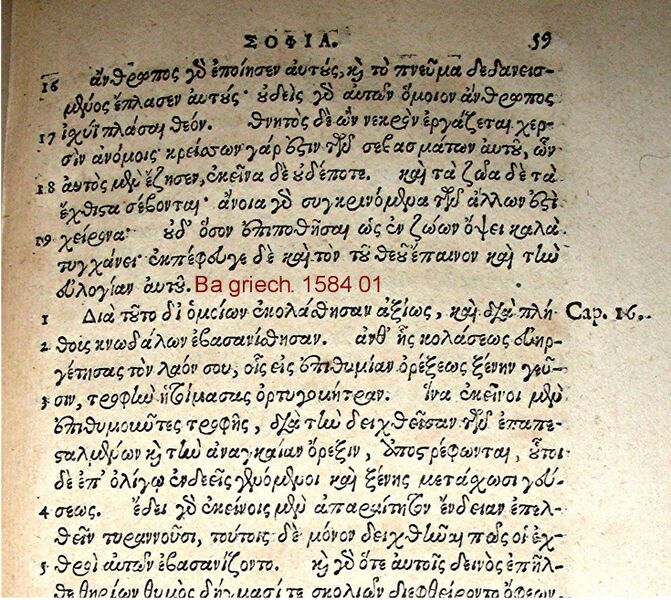 ΣΟΦΙΑ. 59
16 ἄνθρωπος γὰρ ἐποίησεν αὐτούς, καὶ τὸ πνεῦμα δεδανεισ-
μένος ἔπλασεν αὐτούς· οὐδεὶς γὰρ αὐτῶν ὅμοιον ἄνθρωπος
17 ἰσχύει πλάσαι θεόν. θνητὸς δὲ ὢν νεκρὸν ἐργάζεται χερ-
σὶν ἀνόμοις· κρείσσων γάρ ἐστιν τῶν σεβασμάτων αὐτοῦ, ὧν
18 αὐτὸς μὲν ἔζησεν, ἐκεῖνα δὲ οὐδέποτε. καὶ τὰ ζῶα δὲ τὰ
ἔχθιστα σέβονται· ἄνοια γὰρ συγκρινόμενα τῶν ἄλλων ἐστὶ
19 χείρονα· οὐδ' ὅσον ἐπιποθῆσαι ὡς ἐν ζώων ὄψει καλὰ
τυγχάνει· ἐκπέφευγε δὲ καὶ τὸν τοῦ θεοῦ ἔπαινον καὶ τὴν
εὐλογίαν αὐτοῦ. Ba griech. 1584 01
1 Διὰ τοῦτο δι' ὁμοίων ἐκολάσθησαν ἀξίως, καὶ διὰ πλή- Cap. 16.
2 θους κνωδάλων ἐβασανίσθησαν. ἀνθ' ἧς κολάσεως εὐηρ-
γέτησας τὸν λαόν σου, οἷς εἰς ἐπιθυμίαν ὀρέξεως ξένην γεῦ-
3 σιν, τροφὴν ἡτοίμασας ὀρτυγομήτραν. ἵνα ἐκεῖνοι μὲν
ἐπιθυμοῦντες τροφῆς, διὰ τὴν δειχθεῖσαν τῶν ἐπαπε-
σταλμένων καὶ τὴν ἀναγκαίαν ὄρεξιν, ἀποστρέφωνται, οὗτοι
δὲ ἐπ' ὀλίγῳ ἐνδεεῖς γενόμενοι καὶ ξένης μετάσχωσι γεύ-
4 σεως. ἔδει γὰρ ἐκείνοις μὲν ἀπαραίτητον ἔνδειαν ἐπελ-
θεῖν τυραννοῦσι, τούτοις δὲ μόνον δειχθῆναι πῶς οἱ ἐχ-
5 θροὶ αὐτῶν ἐβασανίζοντο. καὶ γὰρ ὅτε αὐτοῖς δεινὸς ἐπῆλ-
θε θηρίων θυμὸς δήγμασί τε σκολιῶν διεφθείροντο ὄφεων,